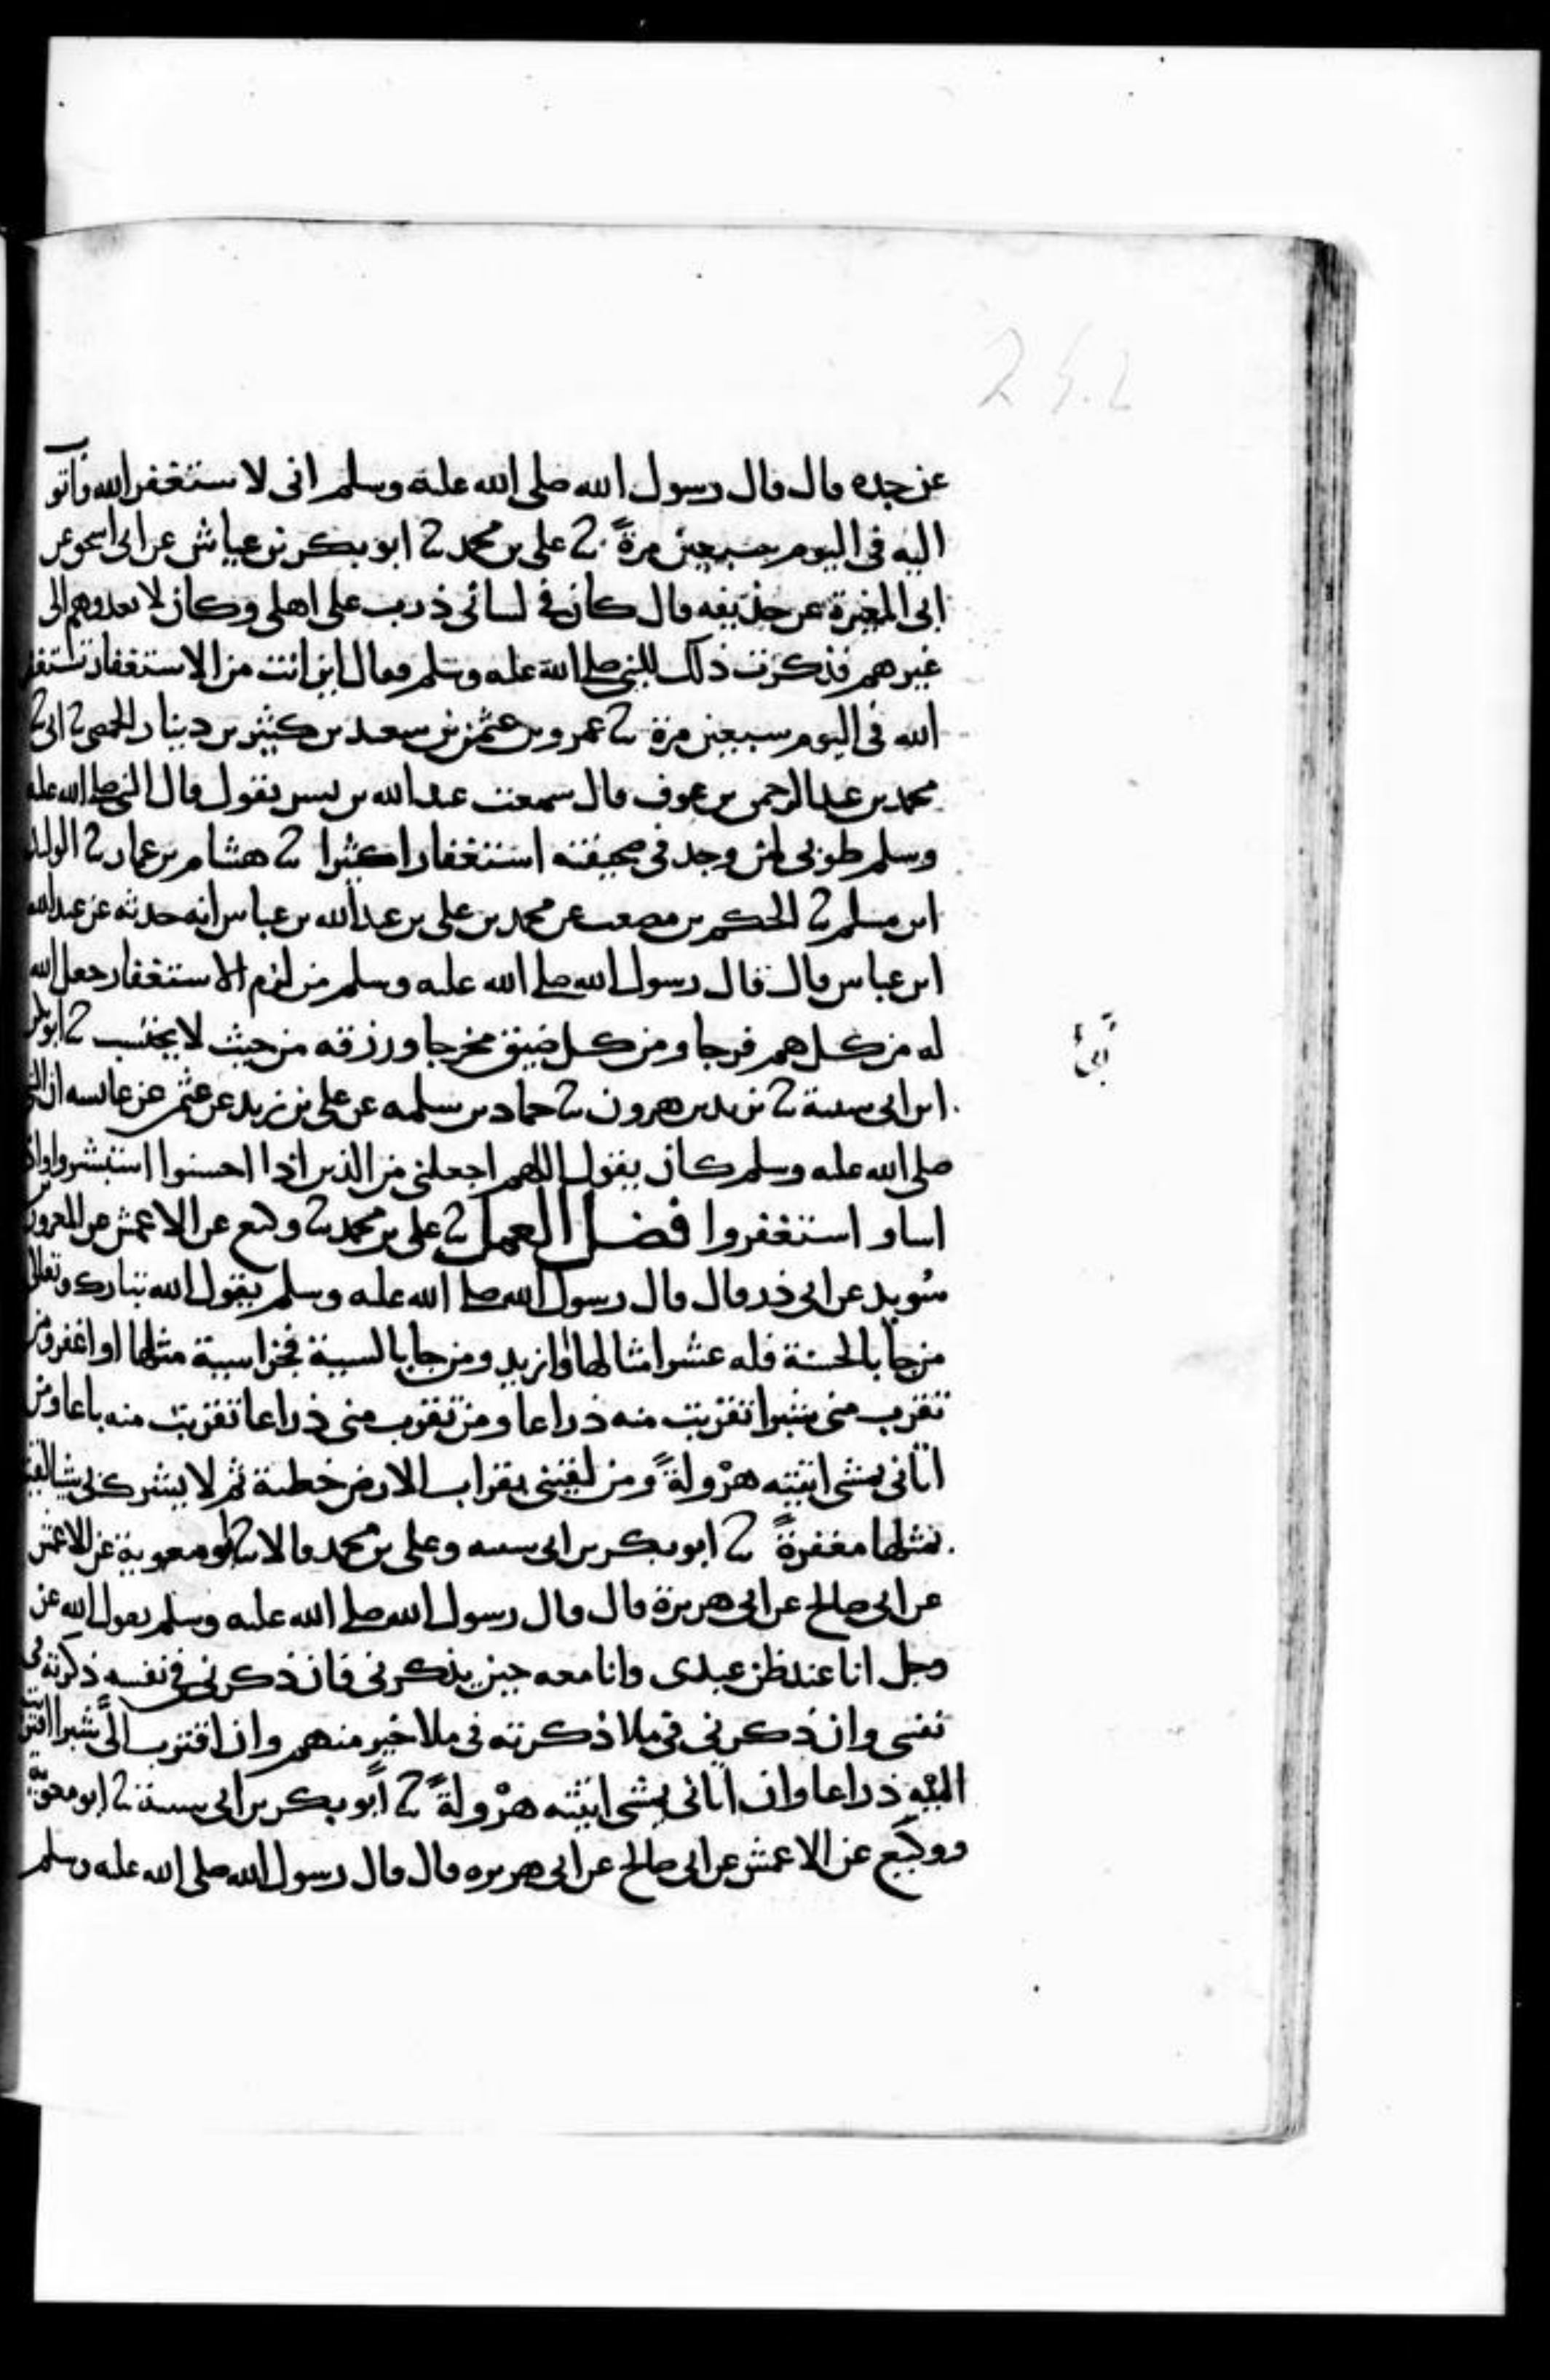 عن جده قال قال رسول الله صلى الله عليه وسلم انى لا ستغفر الله واتو
اليه فى اليوم سبعين مرةً ثنا على بن محمد ثنا ابو بكر بن عياش عن ابى اسحق عن
ابى المغيرة عن حذيفه قال كان فى لسانى ذرب على اهلى وكان لا يعدوهم الى
غيرهم فذكرت ذلك للنبى صلى الله عليه وسلم فقال اين انت من الاستغفار تستغفر
الله فى اليوم سبعين مرة ثنا عمرو بن عثمن بن سعيد بن كثير بن دينار الحمصى ثنا ابى ثنا
محمد بن عبد الرحمن بن عوف قال سمعت عبد الله بن بسر يقول قال النبى صلى الله عليه
وسلم طوبى لمن وجد فى صحيفته استغفارا كثيرا ثنا هشام بن عمار ثنا الوليد
ابن مسلم ثنا الحكم بن مصعب عن محمد بن على بن عبد الله بن عباس انه حدثه عن عبد الله
ابن عباس قال قال رسول الله صلى الله عليه وسلم من لزم الاستغفار جعل الله
له من كل هم فرجا ومن كل ضيق مخرجا ورزقه من حيث لا يحتسب ثنا ابو بكر
ابن ابى شيبة ثنا يزيد بن هرون ثنا حماد بن سلمه عن على بن زيد عن عثمن عن عايشه ان النبى
صلى الله عليه وسلم كان يقول اللهم اجعلنى من الذين اذا احسنوا استبشروا واذا
اساو استغفروا فضل العمل ثنا على بن محمد ثنا وكيع عن الاعمش عن المعرور بن
سُويد عن ابى ذر قال قال رسول الله صلى الله عليه وسلم يقول الله تبارك وتعالى
من جا بالحسنة فله عشر امثالها وازيد ومن جا بالسيية فجزا سيية مثلها او اغفر ومن
تقرب منى شبرا تقربت منه ذراعا ومن تقرب منى ذراعا تقربت منه باعا ومن
اتانى يمشى اتيته هرْولةً ومن لقينى بقراب الارض خطية ثم لا يشرك بى شيا لقيته
بمثلها مغفرةً ثنا ابو بكر بن ابى شيبه وعلى بن محمد قالا ثنا ابو معوية عن الاعمش
عن ابى صالح عن ابى هريرة قال قال رسول الله صلى الله عليه وسلم يقول الله عز
وجل انا عند ظن عبدى وانا معه حين يذكرنى فان ذكرنى فى نفسه ذكرته فى
نفسى وان ذكرنى فى ملا ذكرته فى ملا خير منهم وان اقترب الىَّ شبرا اقتربت
اليْه ذراعا وان اتانى يمشى اتيته هرْولةً ثنا ابو بكر بن ابى شيبة ثنا ابو معوية
ووكيع عن الاعمش عن ابى صالح عن ابى هريره قال قال رسول الله صلى الله عليه وسلم